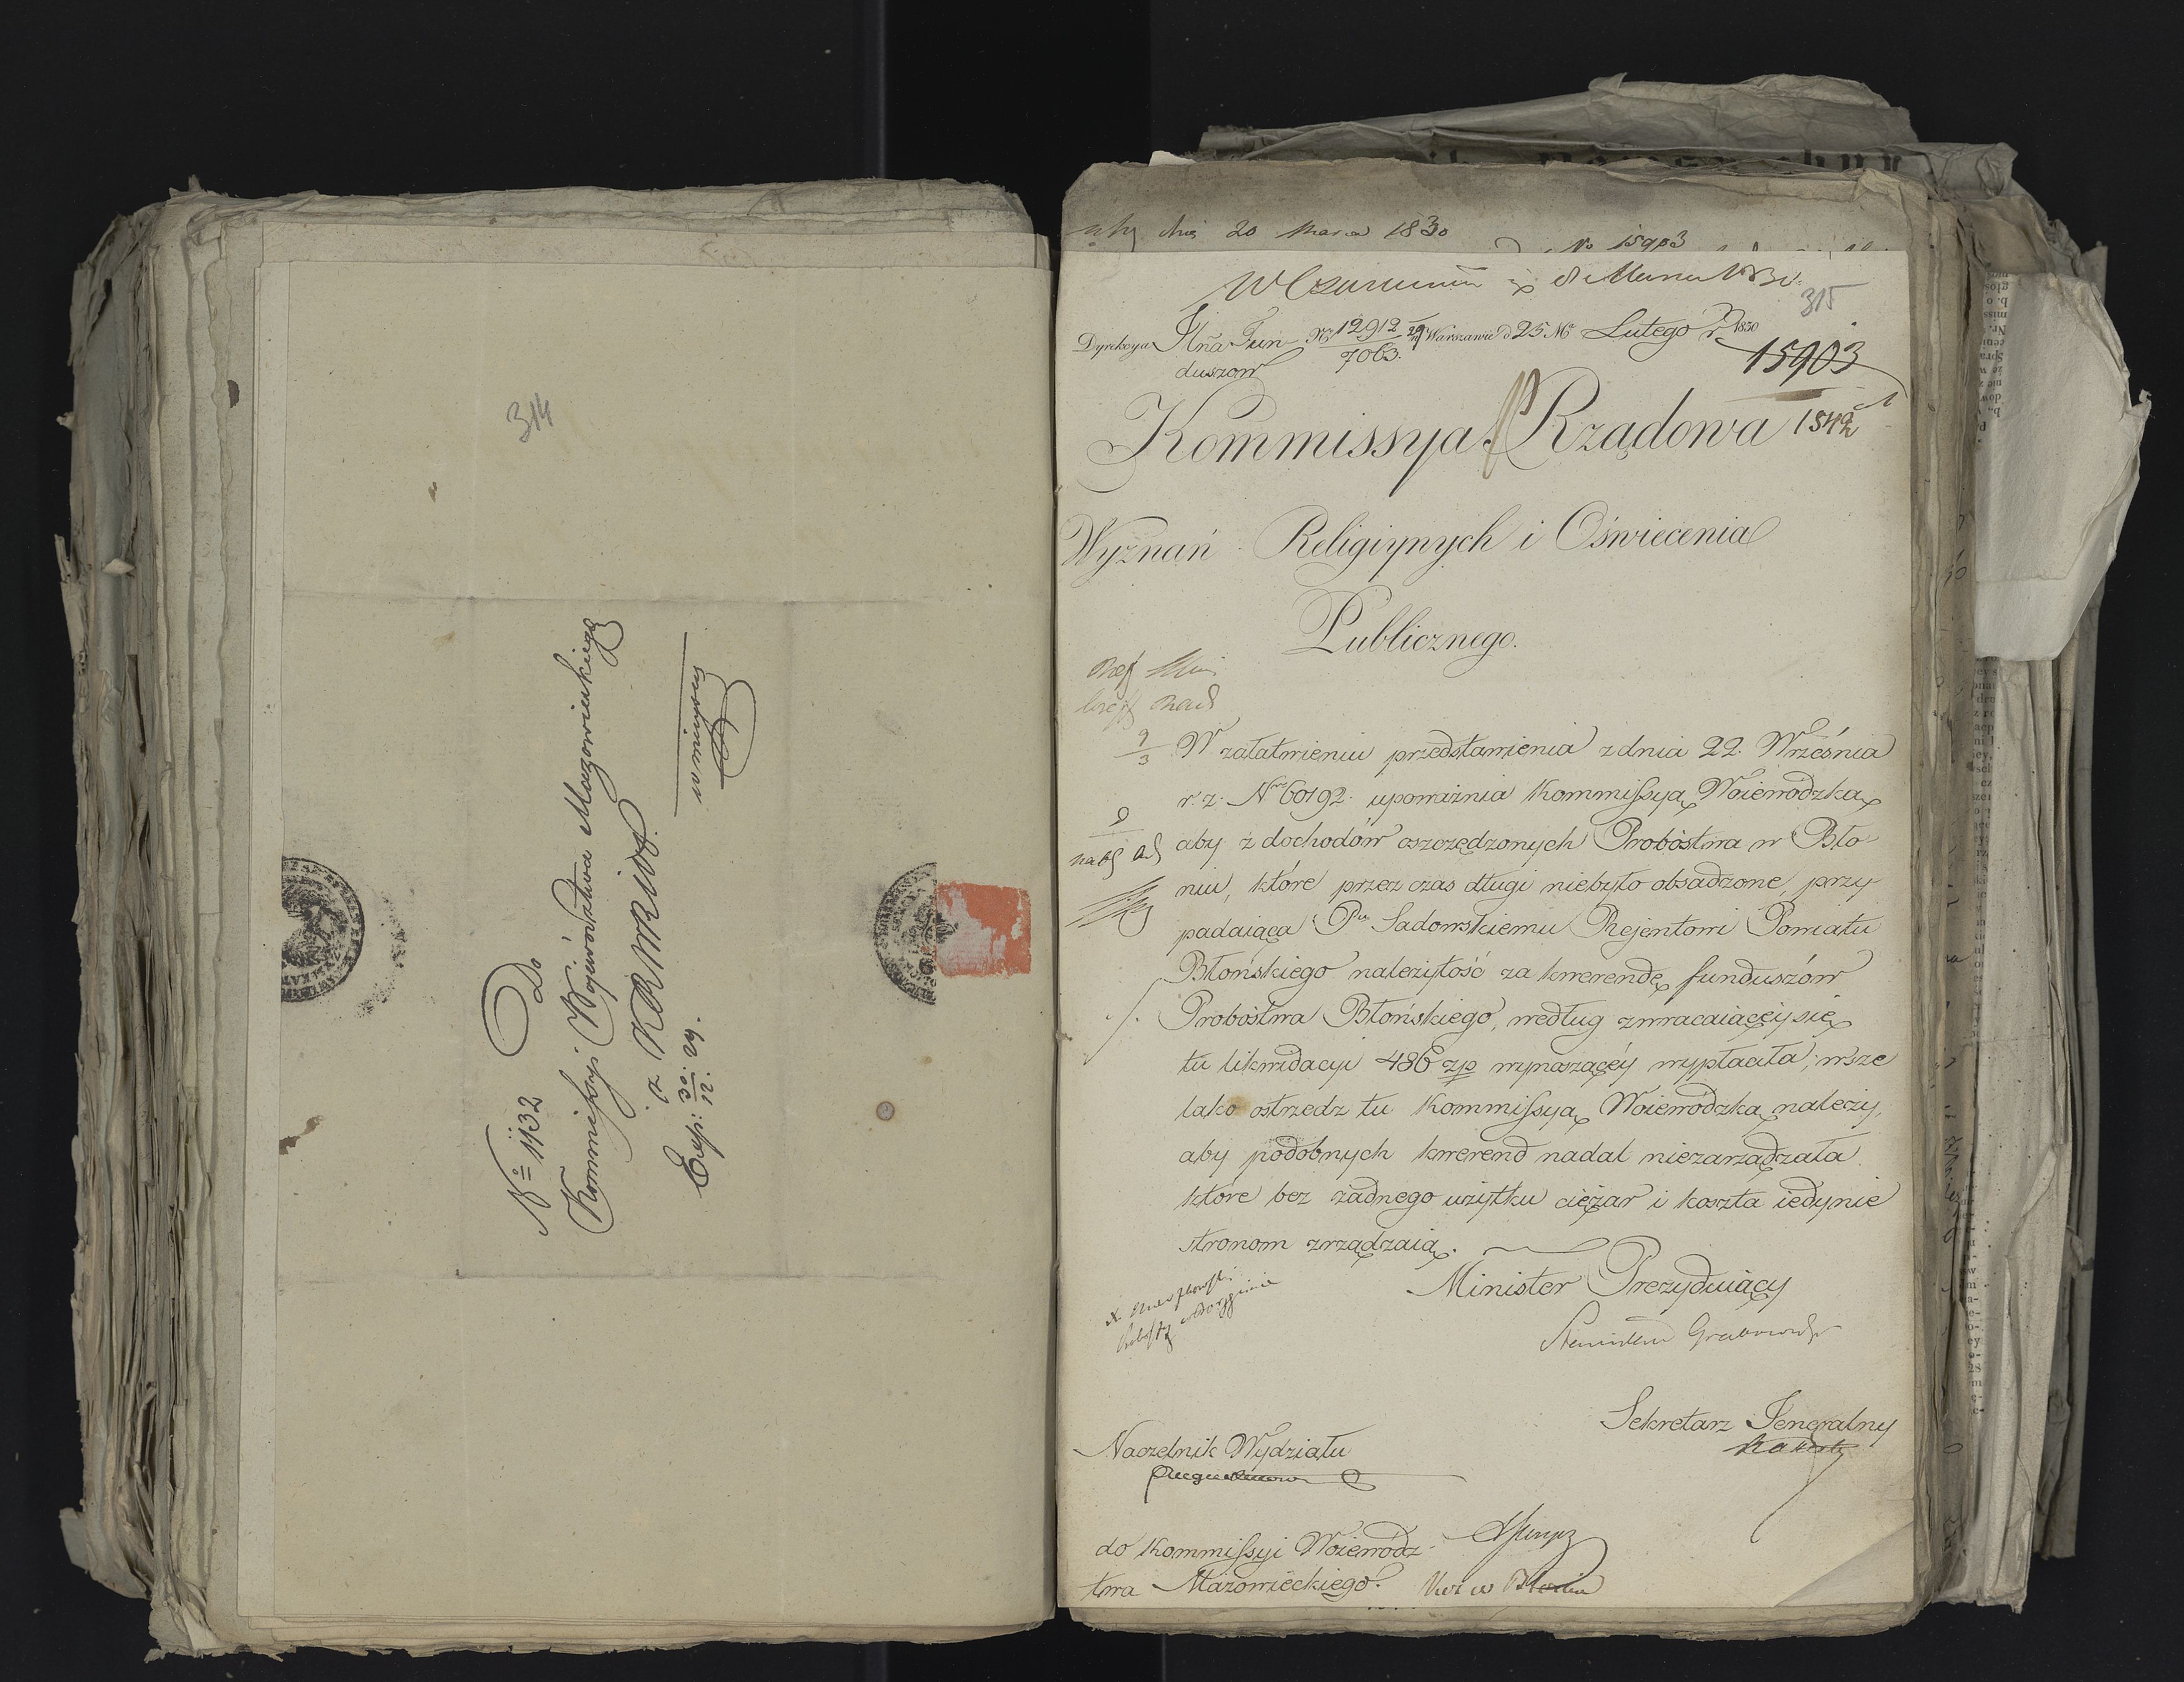 314
Nº 1132
Do
Kommissyi Województwa Mazowieckiego
a KRMRiOP.
Exp: 30/12. 29.
w mieyscu
dnia 20 Marca 1830
No 15903
8 Marca 1830.
315
Dyrekcya Jlna Fun
duszow
Nr 12912/7063. w Warszawie d 25 Mca Lutego 1830 r.
15903
1542
Kommissya Rządowa
Wyznań Religiynych i Oświecenia
Publicznego.
9/3
W załatwieniu przedstawienia z dnia 22. Września
r. z. Nro 60192. upoważnia Kommissyą Woiewódzką,
aby z dochodów oszczędzonych Probostwa w Bło
niu, które przez czas długi niebyło obsadzone, przy
padaiącą Pu Sadowskiemu Rejentowi Powiatu
Błońskiego należytość za kwerendę funduszów
Probostwa Błońskiego, według zwracaiącéy się
tu likwidacyi 486 zp wynoszącéy wypłaciła; wsze
lako ostrzedz tu Kommissyą Woiewódzką należy,
aby podobnych kwerend nadal niezarządzała
które bez żadnego użytku ciężar i koszta iedynie
stronom zrządzaią.
Minister Prezyduiący
Stanisław Grabowski
Sekretarz Jeneralny
Naczelnik Wydziału
do Kommissyi Woiewódz
twa Mazowieckiego.